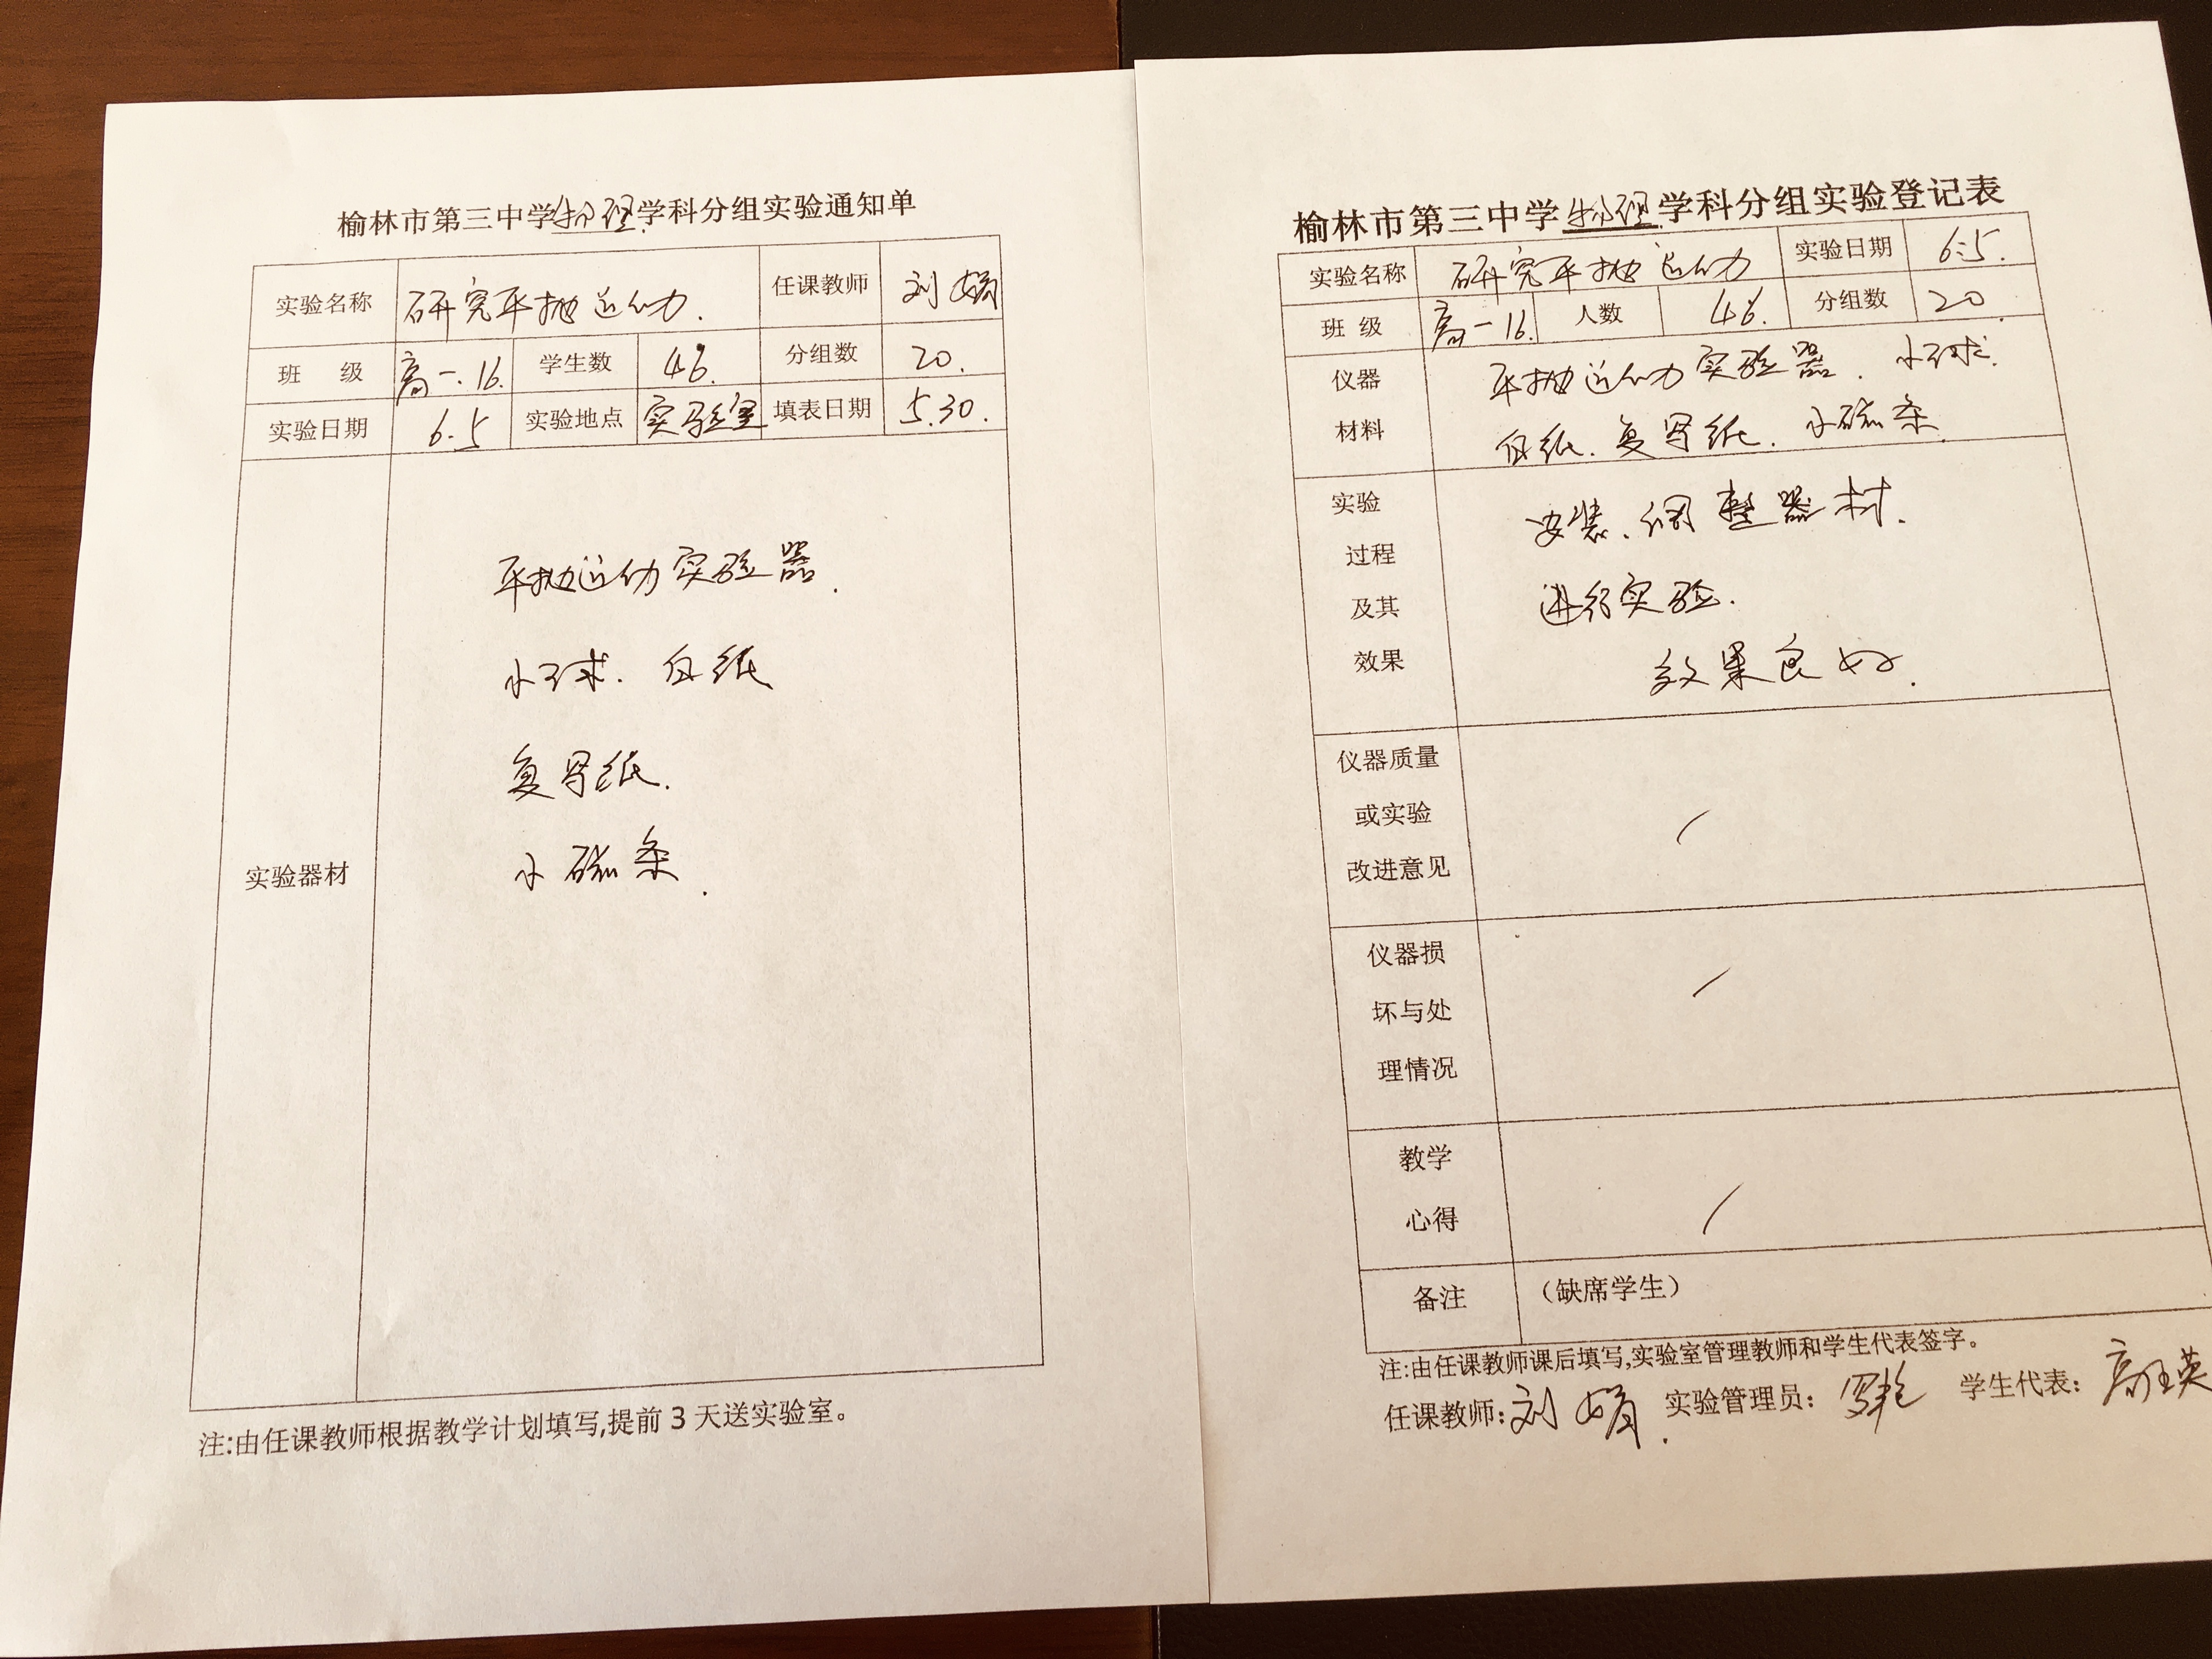 榆林市第三中学物理学科分组实验通知单
实验名称 研究平抛运动. 任课教师 刘娟
班 级 高一.16. 学生数 46. 分组数 20.
实验日期 6.5 实验地点 实验室 填表日期 5.30.
实验器材
平抛运动实验器.
小球. 白纸
复写纸.
小磁条.
注:由任课教师根据教学计划填写,提前3天送实验室。
榆林市第三中学物理学科分组实验登记表
实验名称 研究平抛运动 实验日期 6.5.
班 级 高一16. 人数 46. 分组数 20
仪器 平抛运动实验器. 小球.
材料 白纸. 复写纸. 小磁条.
实验 安装、调整器材.
过程
及其 进行实验.
效果 效果良好.
仪器质量
或实验 /
改进意见
仪器损
坏与处 /
理情况
教学
心得 /
备注 (缺席学生)
注:由任课教师课后填写,实验室管理教师和学生代表签字。
任课教师:刘娟. 实验管理员: 学生代表: